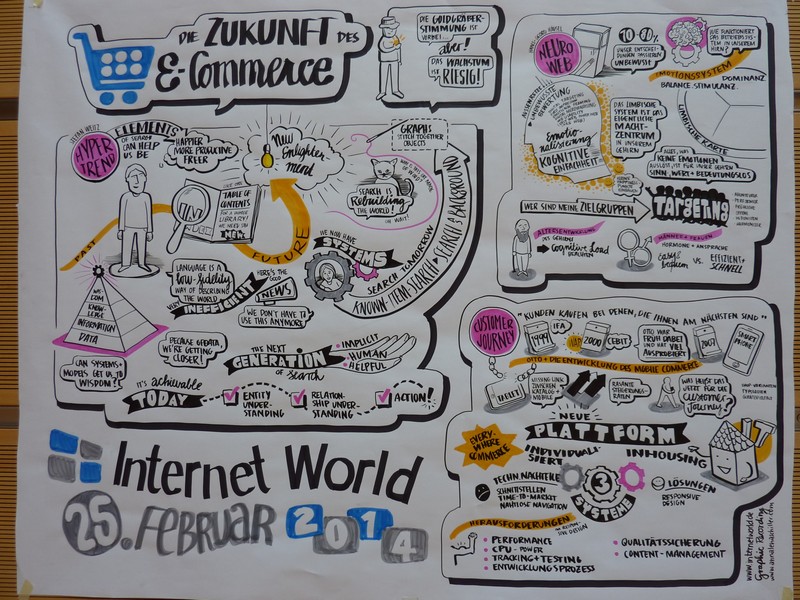 DIE ZUKUNFT DES
E-Commerce
DIE GOLDGRÄBER-
STIMMUNG IST
VORBEI...
aber!
DAS WACHSTUM
IST RIESIG!
STEFAN WEITZ
HYPER
TREND
ELEMENTS
OF SEARCH
CAN HELP
US BE
HAPPIER
MORE PRODUCTIVE
FREER
New Enlighten-
ment
GRAPH:
STITCH TOGETHER
OBJECTS
TABLE OF
CONTENTS
LIBRARY!
WE NEED
NEW
SEARCH IS
Rebuilding
THE WORLD!
PAST
FUTURE
WE NOW HAVE
SYSTEMS
KNOWN-ITEM-SEARCH
SEARCH TOMORROW
SEARCH & BACKGROUND
LANGUAGE IS A
low-fidelity
WAY OF DESCRIBING
THE WORLD
VERY INEFFICIENT
HERE'S THE GOOD
NEWS
WE DON'T HAVE TO
USE THIS ANYMORE
WISDOM
KNOWLEDGE
INFORMATION
DATA
CAN SYSTEMS +
MODELS GET US TO
WISDOM?
BECAUSE OF DATA,
WE'RE GETTING
CLOSER!
THE NEXT
GENERATION
of search
IMPLICIT
HUMAN
HELPFUL
IT'S achievable
TODAY
ENTITY
UNDER-
STANDING
RELATION-
SHIP UNDER-
STANDING
ACTION!
Internet World
25. FEBRUAR 2014
NEURO
WEB
UNSER ENTSCHEI-
DUNGEN PASSIEREN
UNBEWUSST
WIE FUNKTIONIERT
DAS BELOHNUNGSSYSTEM
IN UNSEREM
HIRN?
EMOTIONSSYSTEM
DOMINANZ
BALANCE. STIMULANZ.
LIMBISCHE KARTE
UNBEWUSSTE
BEWERTUNG
Emotio-
nalisierung
KOGNITIVE
EINFACHHEIT
DAS LIMBISCHE
SYSTEM IST DAS
EIGENTLICHE
MACHT-
ZENTRUM
IN UNSEREM
GEHIRN
ALLES, WAS
KEINE EMOTIONEN
AUSLÖST, IST FÜR UNSER GEHIRN
SINN, WERT + BEDEUTUNGSLOS
WER SIND MEINE ZIELGRUPPEN
TARGETING
ALTERSENTWICKLUNG
DES GEHIRNS
Cognitive Load
REDUZIEREN
MÄNNER + FRAUEN
HORMONE + ANSPRACHE
VS.
EFFIZIENT +
SCHNELL
CUSTOMER
JOURNEY
"KUNDEN KAUFEN BEI DENEN, DIE IHNEN AM NÄCHSTEN SIND"
1999
IFA
2000
CEBIT
OTTO WAR
FRÜH DABEI
UND HAT VIEL
AUSPROBIERT
2007
SMART
PHONE
OTTO + DIE ENTWICKLUNG DES MOBILE COMMERCE
TABLET
MISSING LINK
ZWISCHEN
KATALOG +
MOBILE
RASANTE
STEIGERUNGS-
RATEN
WAS HEISST DAS
JETZT FÜR DIE
Customer
Journey?
EVERY-
WHERE
COMMERCE
NEUE
PLATTFORM
INDIVIDUALI-
SIERT
INHOUSING
IT
TECHN. NACHTEILE
SCHNITTSTELLEN
TIME-TO-MARKT
NAHTLOSE NAVIGATION
3
SYSTEME
LÖSUNGEN
RESPONSIVE
DESIGN
HERAUSFORDERUNGEN
PERFORMANCE
CPU-POWER
TRACKING + TESTING
ENTWICKLUNGSPROZESS
QUALITÄTSSICHERUNG
CONTENT-MANAGEMENT
www.internetworld.de
Graphic Recording